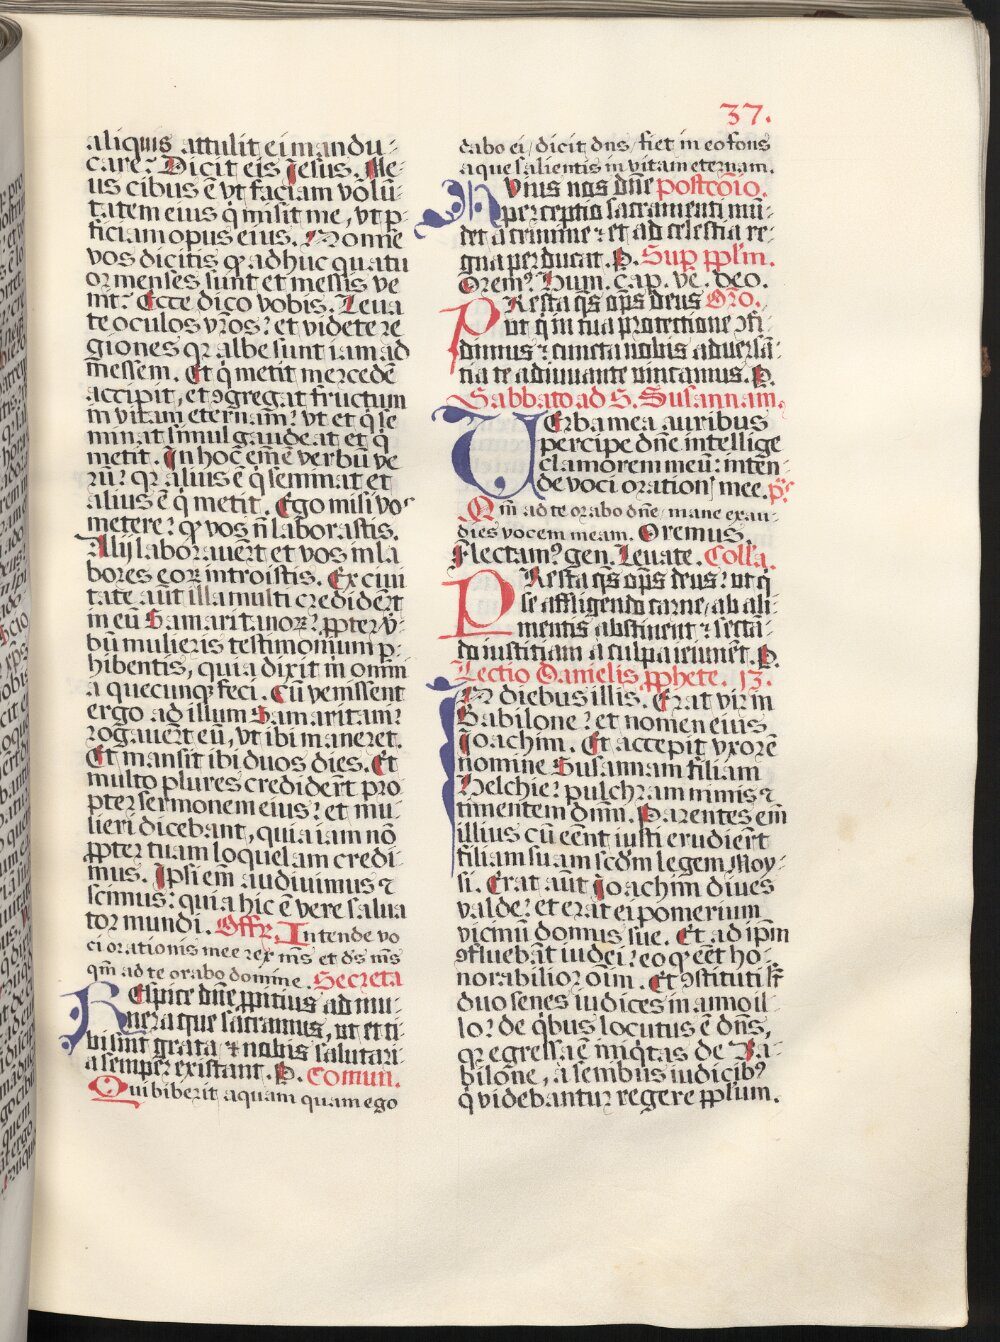 37.
aliquis attulit ei mandu-
care? Dicit eis Jesus. Me-
us cibus ē vt faciam volū-
tatem eius q̇ misit me, vt p-
ficiam opus eius. Nonne
vos dicitis qꝛ adhuc quatu
or menses sunt et messis ve
nit? Ecce dico vobis. Leua
te oculos vr̄os? et videte re
giones qꝛ albe sunt iam ad
messem. Et q̇ metit mercedē
accipit, et ꝯgregat fructum
in vitam eternam? vt et q̇ se
minat simul gaudeat et q̇
metit. In hoc em̄ ē verbū ve
rū? qꝛ alius ē q̇ seminat et
alius ē q̇ metit. Ego misi vos
metere? qꝛ vos n̄ laborastis.
Alij laborauer̄t et vos in la
bores eoꝝ introistis. Ex ciui
tate aūt illa multi crediderт̄
in eū Samaritanoꝝ? ꝓpter v-
bū mulieris testimonium p-
hibentis, quia dixit m̄ omn̄i
a quecunqꝫ feci. Cū venissent
ergo ad illum Samaritani?
rogauer̄t eū, vt ibi maneret.
Et mansit ibi duos dies. Et
multo plures crediderт̄ pro
pter sermonem eius? et mu-
lieri dicebant, quia iam nō
ꝓpter tuam loquelam credi-
mus. Ipsi em̄ audiuimus ⁊
scimus? quia hic ē vere salua
tor mundi. Offr. Intende vo
ci orationis mee rex ms̄ et ds̄ ms̄
qm̄ ad te orabo domine. Secreta
Respice dn̄e ꝓpitius ad mu-
nera que sacramus, ut et ti-
bi sint grata ⁊ nobis salutari-
a semper existant. P. Comun.
Qui biberit aquam quam ego
dabo ei, dicit dn̄s, fiet in eo fons
aque salientis in vitam eternam.
Huius nos dn̄e postcōio.
perceptio sacramenti mū-
det a crimine ⁊ et ad celestia re-
gna perducat. P. Sup ꝓplm̄.
Orem⁹. Hum. cap. ve. deo.
Presta qs̄ ops̄ deus Orō.
ut q̇ in tua protectione ꝯfi-
dimus ⁊ cuncta nobis aduersā-
tia te adiuuante vincamus. P.
Sabbato ad S. Susannam.
Uerba mea auribus
percipe dn̄e intellige
clamorem meū? inten-
de voci orationis mee. ps.
Qm̄ ad te orabo dn̄e, mane exau-
dies vocem meam. Oremus.
Flectam⁹ gen. Leuate. Coll'a.
Presta qs̄ ops̄ deus? ut q̇
se affligendo carne, ab ali-
mentis abstinent ⁊ sectā-
do iustitiam a culpa ieiunēt. P.
Lectio Danielis ꝓphete. 13.
In diebus illis. Erat vir in
Babilone? et nomen eius
Joachim. Et accepit vxorē
nomine Susannam filiam
Helchie? pulchram nimis ⁊
timentem dn̄m. Parentes em̄
illius cū eēnt iusti erudiert̄
filiam suam scd̄m legem Moy-
si. Erat aūt Joachim diues
valde? et erat ei pomerium
vicinū domus sue. Et ad ip̄m
ꝯfluebāt iudei? eo qꝫ eēt ho-
norabilior oīm. Et ꝯstituti st̄
duo senes iudices in anno il-
lo? de q̇bus locutus ē dn̄s,
qꝛ egressa ē iniq̇tas de Ba-
bilone, a senibus iudicib⁹
q̇ videbantur regere ꝓplum.